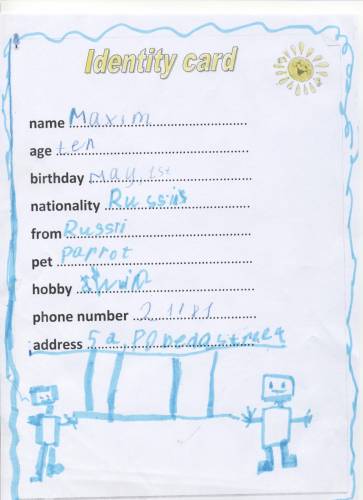 Identity card
name Maxim
age ten
birthday May, 1st
nationality
from
pet parrot
hobby
phone number
address 5a, PObeda street